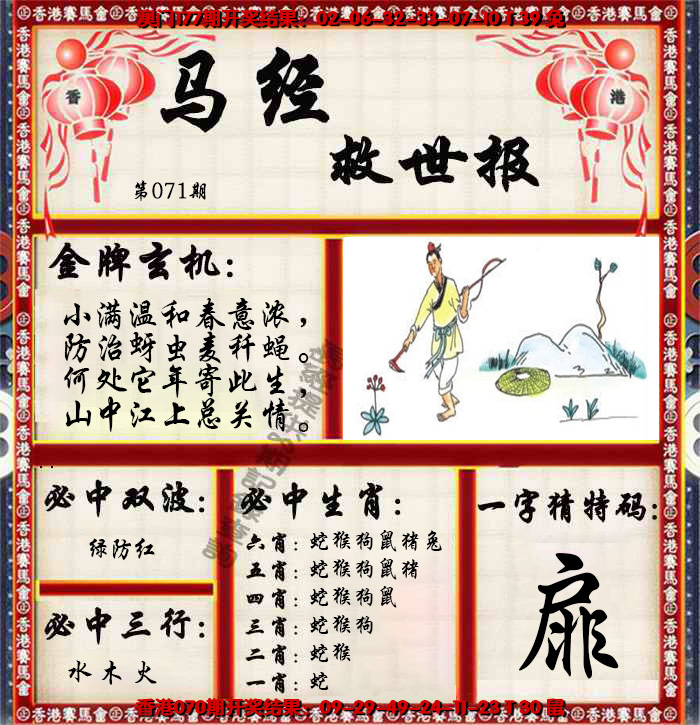 澳门177期开奖结果：02-06-32-33-07-10 T 39 兔
香 港
马经
救世报
第071期
金牌玄机：
小满温和春意浓，
防治蚜虫麦秆蝇。
何处它年寄此生，
山中江上总关情。
必中双波：
绿防红
必中三行：
水木火
必中生肖：
六肖：蛇猴狗鼠猪兔
五肖：蛇猴狗鼠猪
四肖：蛇猴狗鼠
三肖：蛇猴狗
二肖：蛇猴
一肖：蛇
一字猜特码：
扉
香港070期开奖结果：09-29-49-24-11-23 T 30 鼠
香港賽馬會